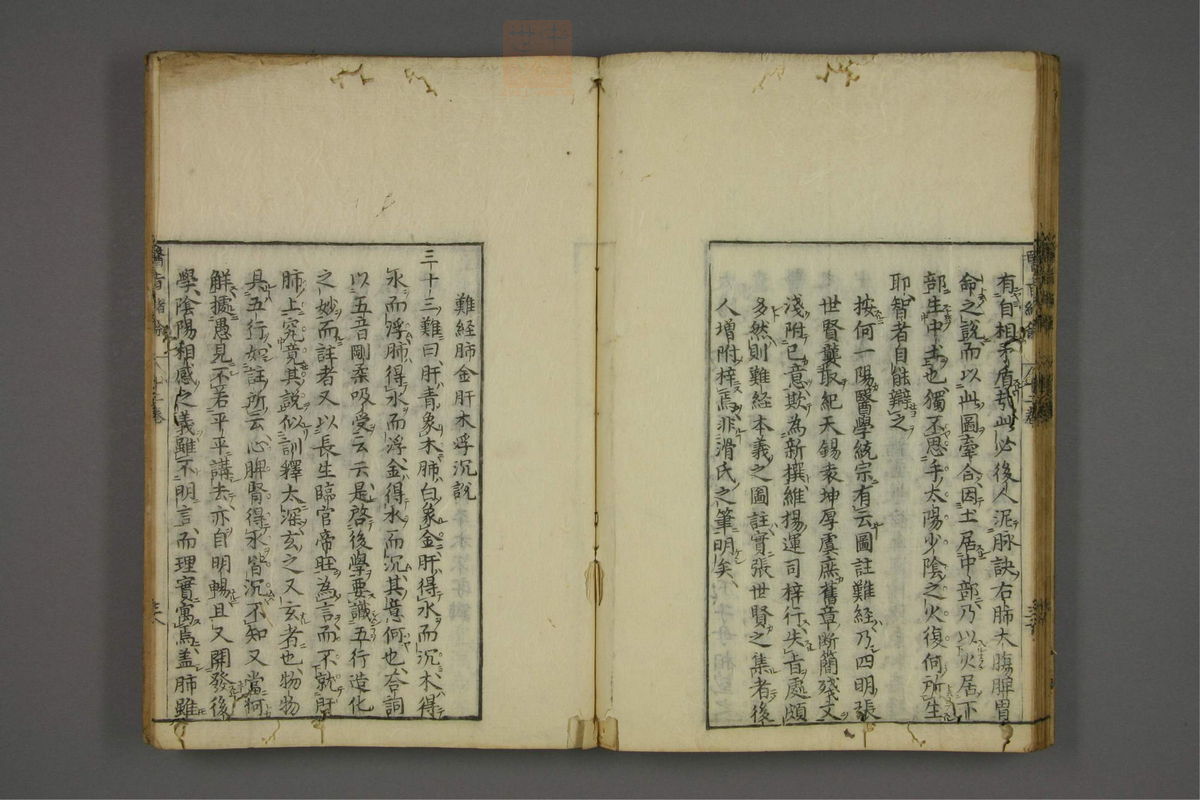 有自相矛盾哉此必後人泥脉訣右肺大膓脾胃
命之說而以此圖牽合因土居中部乃以火居下
部生中土也獨不思手太陽少陰之火復何所生
耶智者自能辯之
按何一陽醫學統宗有云圖註難經乃四明張
世賢襲取紀天錫袁坤厚虞庶舊章断簡殘文
淺附已意欺為新撰維揚運司梓行失旨處頗
多然則難経本義之圖註實張世賢之集者後
人増附梓焉非滑氏之筆明矣
難経肺金肝木浮沉說
三十三難曰肝青象木肺白象金肝得水而沉木得
水而浮肺得水而浮金得水而沉其意何也荅詞
以五音剛柔吸受云云是啓後學要識五行造化
之妙而註者又以長生臨官帝旺為言而不就肝
肺上究竟其說似訓釋太深玄之又玄者也物物
具五行如註所云心脾腎得水皆沉不知又當何
觧據愚見不若平平講去亦自明暢且又開發後
學陰陽相感之義雖不明言而理實寓焉盖肺雖